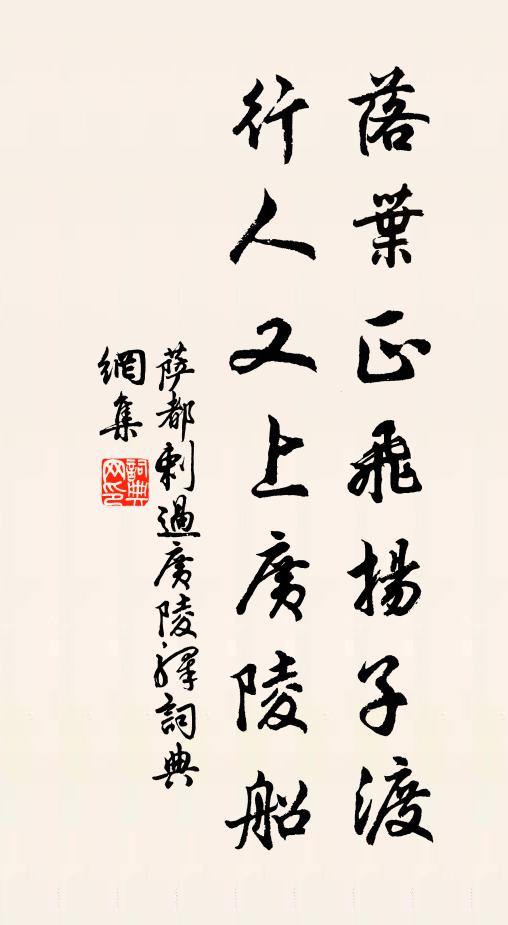 落葉正飛揚子渡
行人又上廣陵船
薩都剌過廣陵驛詞典
網集
詞典網印